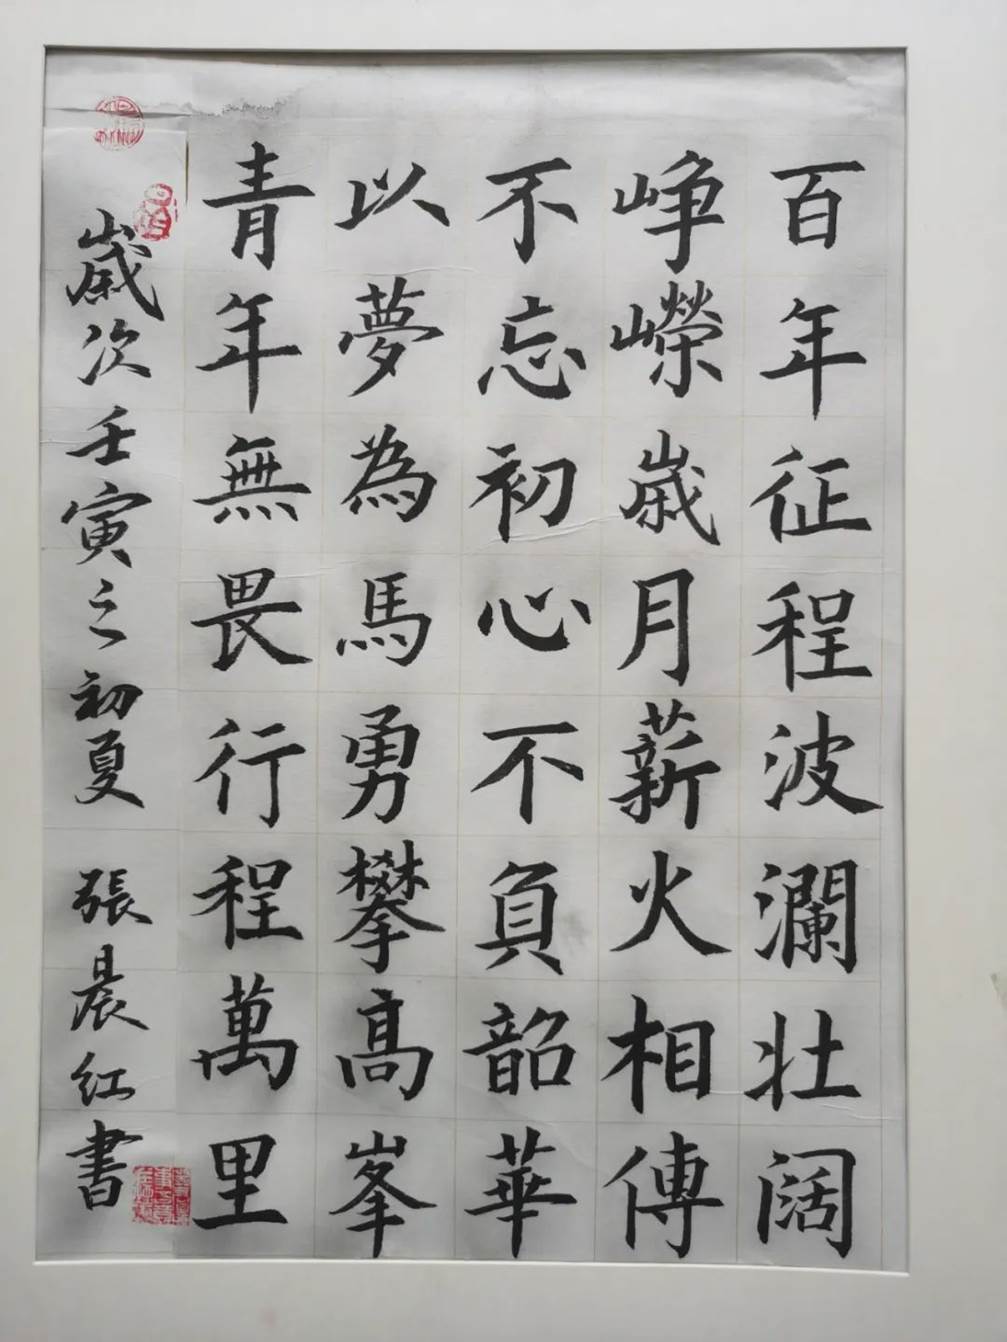 百年征程波瀾壯闊
崢嶸歲月薪火相傳
不忘初心不負韶華
以夢為馬勇攀高峯
青年無畏行程萬里
歲次壬寅之初夏 張晨红書